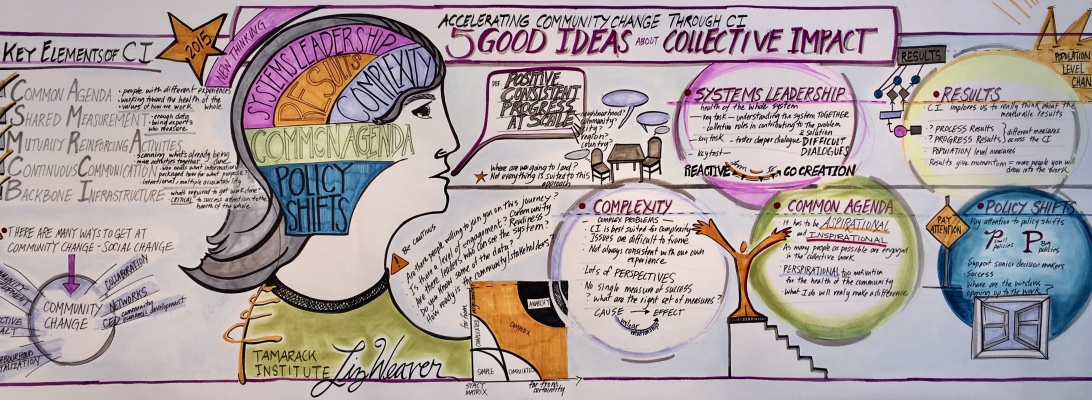 ACCELERATING COMMUNITY CHANGE THROUGH CI
5 GOOD IDEAS ABOUT COLLECTIVE IMPACT
KEY ELEMENTS OF CI
2015
NEW THINKING
COMMON AGENDA
• people with different experiences
• working toward the health of the
• values of how we work whole
SHARED MEASUREMENT
• enough data
• being experts
who measure
MUTUALLY REINFORCING ACTIVITIES
scanning what's already being
CONTINUOUS COMMUNICATION
who needs what information
packaged how for what purpose
BACKBONE INFRASTRUCTURE
what's required to get work done
CRITICAL to success attention to the
health of the whole
• THERE ARE MANY WAYS TO GET AT
COMMUNITY CHANGE - SOCIAL CHANGE
COMMUNITY
CHANGE
COLLABORATION
NETWORKS
CED community
economic development
SYSTEMS LEADERSHIP
RESULTS
COMPLEXITY
COMMON AGENDA
POLICY
SHIFTS
TAMARACK
INSTITUTE
Liz Weaver
DEF.
POSITIVE
CONSISTENT
PROGRESS
AT SCALE
neighbourhood?
community?
city?
region?
country?
where are we going to land?
Not everything is suited to this
approach
BE CAUTIOUS
Are there people willing to join you on this journey?
Is there a level of engagement? Community
leaders who can see the system? Readiness?
Do you know some of the data?
How ready is the community/stakeholders
far from
ANARCHY
COMPLEX
SIMPLE
COMPLICATED
STACY
MATRIX
far from
certainty
• SYSTEMS LEADERSHIP
health of the whole system
key task — understanding the system TOGETHER
collective roles in contributing to the problem
& solution
key task — foster deeper dialogue DIFFICULT
DIALOGUES
key task —
REACTIVE
CO CREATION
RESULTS
• RESULTS
CI implores us to really think about the
measurable results
? PROCESS Results
? PROGRESS Results
different measures
across the CI
POPULATION level measures
Results give momentum = more people you will
draw into the work
POPULATION
LEVEL
CHAN
• COMPLEXITY
COMPLEX PROBLEMS —
CI is best suited for complexity
Issues are difficult to frame
Not always consistent with our own
experience
Lots of PERSPECTIVES
No single measure of success
? what are the right set of measures?
CAUSE → EFFECT
unclear
relationship
• COMMON AGENDA
It has to be ASPIRATIONAL
and INSPIRATIONAL
As many people as possible are engaged
in the collective work
PERSPIRATIONAL too motivation
for the health of the community
What I do will really make a difference
PAY
ATTENTION
• POLICY SHIFTS
Pay attention to policy shifts
Small
policies
Big
policies
Support senior decision makers
Success
Where are the windows
opening up to the work?